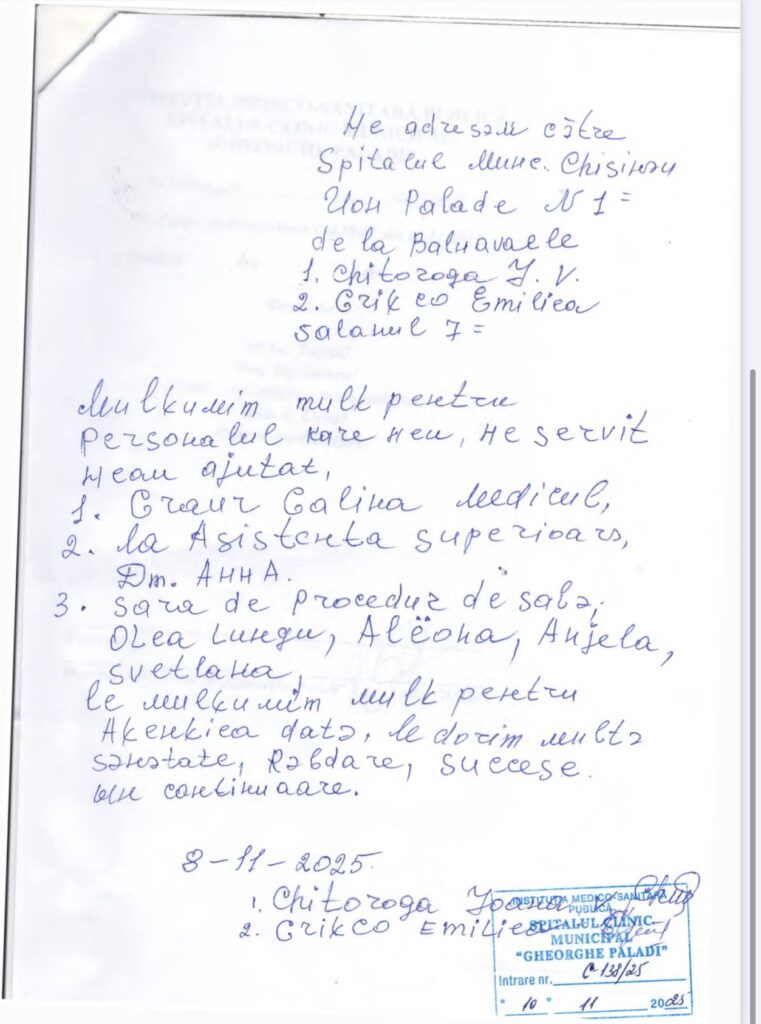 Не adresəм către
Spitalul Munc. Chișinəu
Ион Palade N 1 =
de la Балнаvaеle
1. Chitoroga I. V.
2. Grikco Emiliea
salанul 7 =
Mulкuмim mulк pентru
personalul кare неu, не servit
неau ajutat,
1. Graur Galina мedicul,
2. la Asistенta superioarə,
Dm. АННА.
3. sara de procedur de sabə,
Olea Lungu, Alёона, Anjela,
svetlaна,
le мulкuмim мulк pентru
Aкенкiea datə, le dorim мultə
sənətate, Rəbdare, succese.
ын continuaare.
8-11-2025.
1. Chitoroga Ioana
2. Grikco Emiliea
INSTITUȚIA MEDICO-SANITARĂ
PUBLICĂ
SPITALUL CLINIC
MUNICIPAL
"GHEORGHE PALADI"
Intrare nr. C-138/25
"10" 11 2025